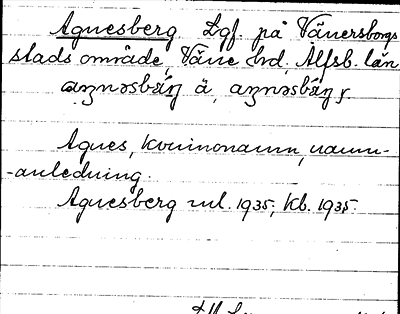 Agnesberg Lgf. på Vänersborgs
stads område, Väne hd, Älfsb. län
aŋnəsbærj ä, aŋnəsbærj
Agnes, kvinnonamn, namn-
-anledning.
Agnesberg ml. 1935, kb. 1935.